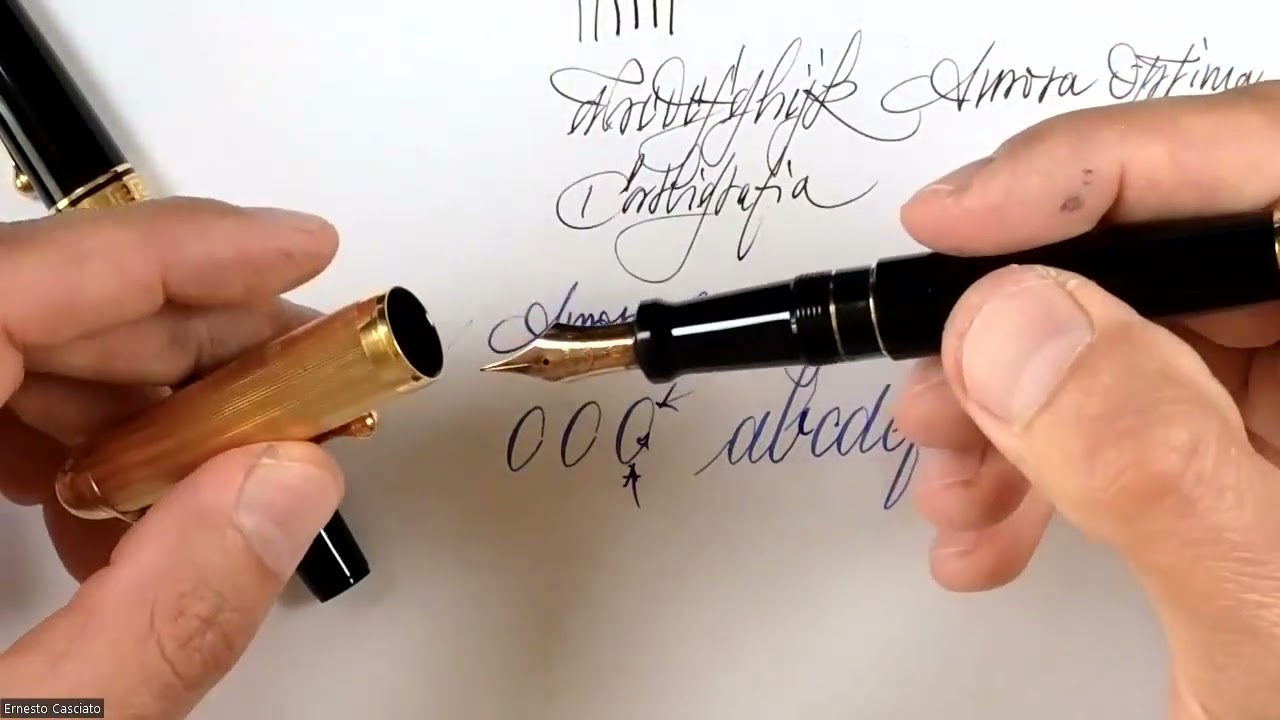 abcdefghijk Aurora Optima
Calligrafia
Auro
000 abcdef
Ernesto Casciato